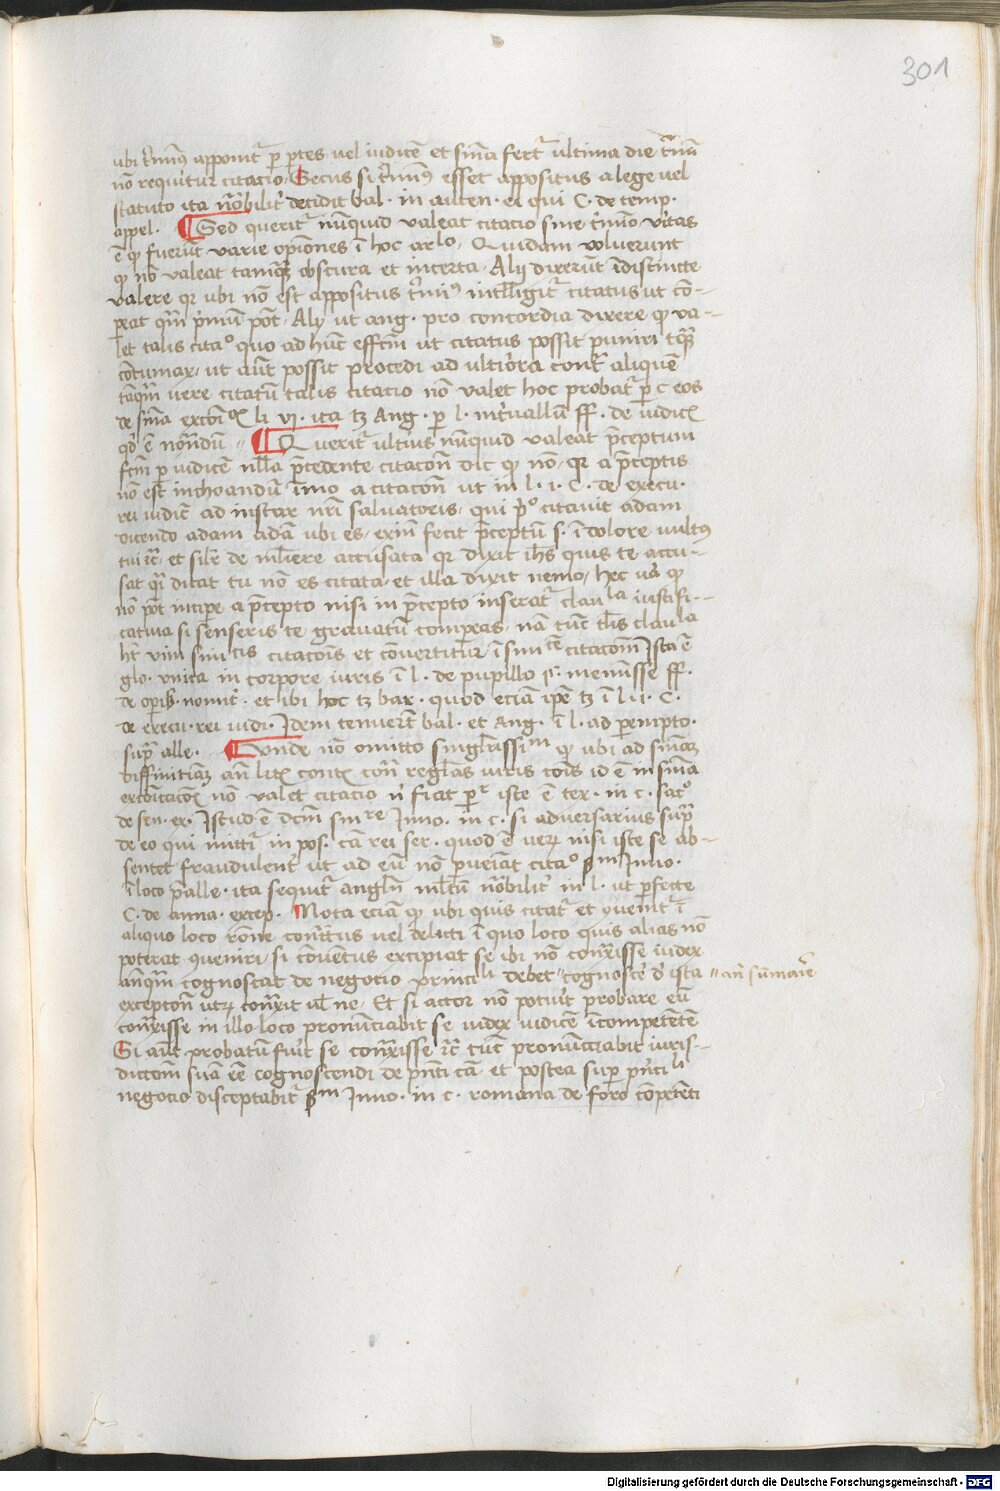 301
ubi t̄minꝰ apponit᷑ p ptes uel iudicē et sn̄ia fert᷑ ultima die t̄mīn
nō requiritur citacio Secus si t̄minꝰ esset appositus a lege uel
statuto ita nōbilit᷑ decidit bal · in auten · ei qui C · de temp ·
appel · Sed querit᷑ nūquid valeat citacio sine t̄mīo · v̄itas
ē ꝙ fuerūt varie opiniones ī hoc ar lo · Quidam voluerunt
ꝙ nō valeat tamꝗꝫ obscura et incerta · Alij dixerūt īdistincte
valere qꝛ ubi nō est appositus t̄minꝰ intelligit᷑ citatus ut cō-
peat qm̄ p̄mū pōt · Alij ut ang · pro concordia dixere ꝙ va-
let talis citaᵒ quo ad hūc effctm̄ ut citatus possit puniri tꝗꝫ
cōtumax / ut aūt possit procedi ad ultiōra cont᷑ aliquē
tāqm̄ vere citatū talis citacio nō valet hoc probat᷑ p c eos
de sn̄ia excōiᵒⁿ li vj · ita tꝫ Ang · p l · int᷑uallū ff · de iudicꝭ
qd̄ ē nōndū · Querit᷑ ultius nūquid valeat p̄ceptum
fctm̄ p iudicē nlla p̄cedente citacōn dic ꝙ nō · qꝛ a p̄ceptis
nō est inchoandū īmo a citacōn ut in l · i · C · de execu ·
rei iudic̄ ad instar nr̄i salvatoris · qui p̄ᵒ citauit adam
dicendo adam adā ubi es · exin̄ fecit p̄ceptū s · ī dolore vultꝰ
tui ⁊c̄ · et silr̄ de mliere accusata qꝛ dixit ihs quis te accu-
sat qꝫ dicat tu nō es citata · et illa dixit nemo / hec uā ꝙ
nō pōt incipe a p̄cepto nisi in p̄cepto inserat᷑ claula iustifi-
catiua si senseris te grauatū compeas · nā tūc tlis claula
ht̄ vim simcis citacōis et cōuertitur ī simcē citacōnm Ista ē
glo · vnica in corpore iuris ī l · de pupillo § · meminisse ff ·
de opib · nouit᷑ · et ibi hoc tꝫ bar · quod eciā ipē tꝫ ī l · i · C ·
de execu · rei iudi · Idem tenuert̄ bal · et Ang · ī l · ad pempto ·
sup̄ alle · Vnde nō omitto singlarissim ꝙ ubi ad sn̄iaꝫ
excōicacōis nō valet citacio n̄ fiat pᵉʳ iste ē tex · in c · satᵒ
de sen · ex · Istud ē dcm̄ smʳᵉ Inno · in c · si aduersarius sup̄
de eo qui mittit᷑ in pos · cā rei ser · quod ē veꝝ nisi iste se ab-
sentet fraudulent᷑ ut ad eū nō pueniāt citaᵒ sm Inno ·
ī loco p̄alle · ita sequit᷑ angl̄n mltū nōbilit᷑ in l · ut pfecte
C · de anna · excep · Nota eciā ꝙ ubi quis citat᷑ et ꝯuenit᷑ ī
aliquo loco rōne contctus uel delicti ī quo loco quis alias nō
poterat ꝯueniri / si cōuentus excipiat se ibi nō contxisse iudex
anꝗm̄ cognoscat de negocio princili debet cognosce d̄ ista // an̄ sūmarie
excepcōn utꝝ contxit ul̄ ne · Et si actor nō potuit probare eū
contxisse in illo loco pronūciabit se iudex iudicē īcompetētē
Si aūt probatū fuit se contxisse ⁊c̄ tūc pronūcciabit iuris-
dictōm suā eē cognoscendi de pn̄ti cā · et postea sup pn̄cili
negocio disceptabit᷑ sm Inno · in c · romana de foro cōpetēti
Digitalisierung gefördert durch die Deutsche Forschungsgemeinschaft · DFG